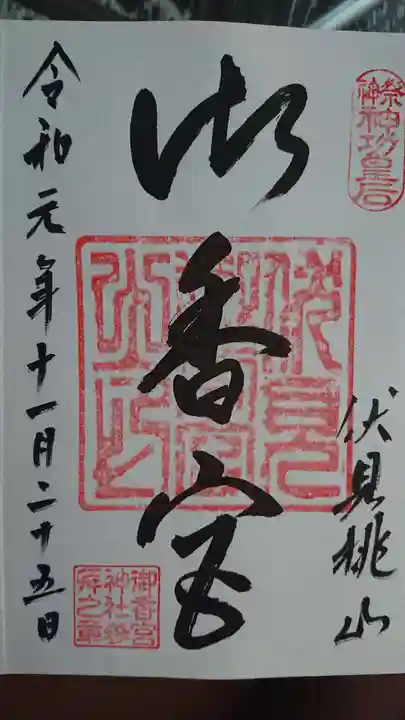 御祭神
神功皇后
伏見桃山
御香宮
令和元年十一月二十五日
御香宮
神社参
拝之章